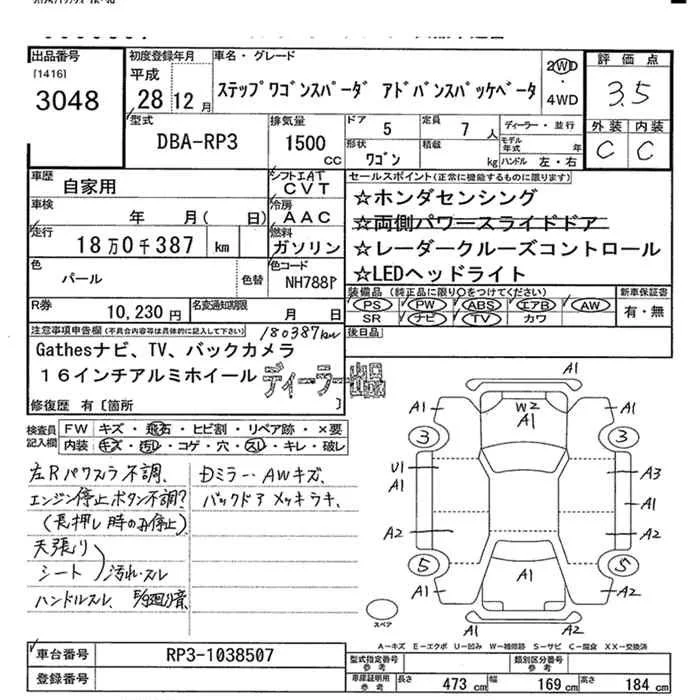 2025/12/23 16:39
出品番号
[1416]
3048
初度登録年月
平成
28 12 月
車名・グレード
ステップワゴンスパーダ アドバンスパッケベータ
2WD
4WD
評価点
3.5
外装 内装
C C
型式
DBA-RP3
排気量
1500 cc
ドア 5
定員 7 人
形状 ワゴン
積載 kg
ディーラー・並行
モデル年式 年
ハンドル 左・右
車歴
自家用
シフト EAT
CVT
車検
年 月( 日)
冷房
AAC
走行
18万0千387 km
燃料
ガソリン
色
パール
色替
色コード
NH788P
R券
10,230円
名変通知期限
月 日
セールスポイント(正常に機能するものに限ります)
☆ホンダセンシング
☆両側パワースライドドア
☆レーダークルーズコントロール
☆LEDヘッドライト
装備品(純正品に限り○をつけてください)
PS PW ABS エアB AW
SR ナビ TV カワ
新車保証書
有・無
後日品
注意事項申告欄(不具合内容等は具体的に記入して下さい)
180387km
Gathesナビ、TV、バックカメラ
16インチアルミホイール
ディーラー出品
修復歴 有〔箇所 〕
検査員記入欄
FW キズ・飛石・ヒビ割・リペア跡・×要
内装 キズ・汚れ・コゲ・穴・スレ・キレ・破レ
左Rパワスラ不調、
エンジン停止ボタン不調?
(長押し時のみ停止)
天張り
シート
汚れ・スレ
ハンドルスレ
Dミラー・AWキズ、
バックドアメッキラキ、
A1
A1 W2 A1 A1
3 3
U1 A1 A3
A1
A2 A2
5 5
A1 A1 A2
A2
スペア
A-キズ E-エクボ U-凹み W-補修跡 S-サビ C-腐食 XX-交換済
車台番号
RP3-1038507
登録番号
型式指定番号 参考
類別区分番号 参考
車庫証明用 参考
長さ 473 cm
幅 169 cm
高さ 184 cm